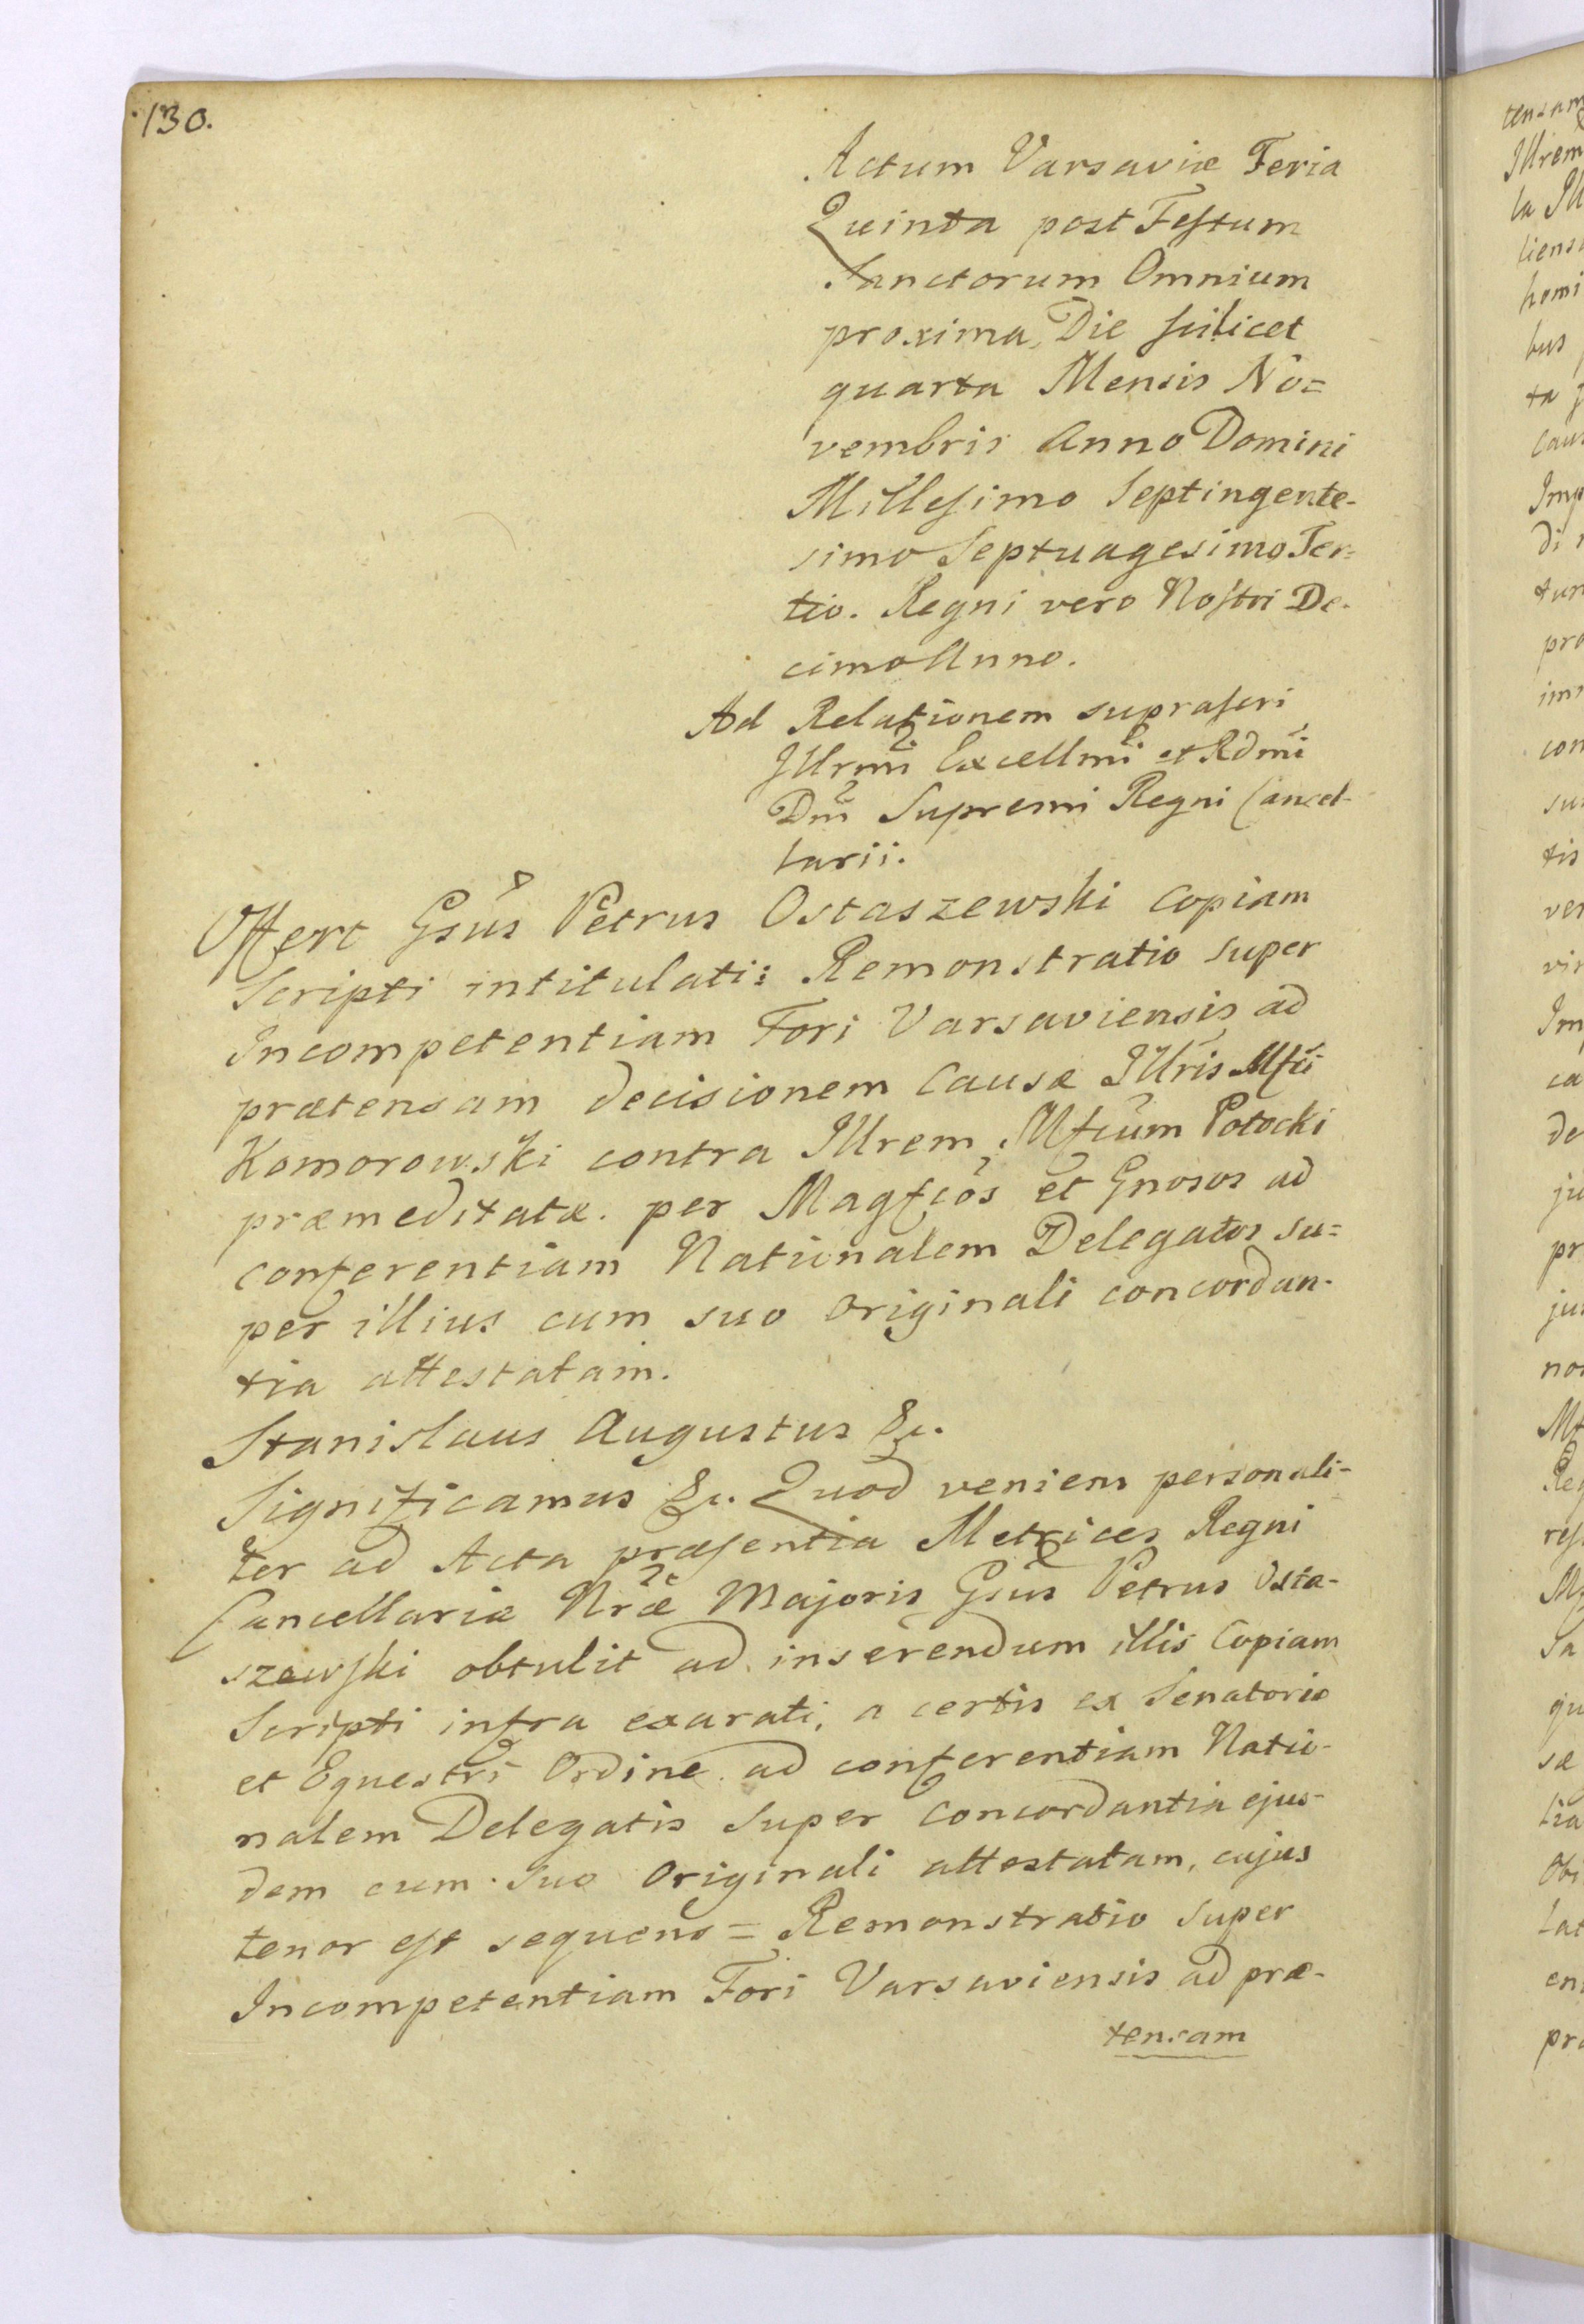 130.
Actum Varsaviæ Feria
Quinta post Festum
Sanctorum Omnium
proxima, Die scilicet
quarta Mensis No=
vembris Anno Domini
Millesimo Septingente-
simo Septuagesimo Ter=
tio. Regni vero Nostri De-
cimo Anno.
Ad Relationem suprascri
Illrmi Excellmi et Rdmi
Dni Supremi Regni Cancel-
larii.
Offert Gsus Petrus Ostaszewski Copiam
Scripti intitulati: Remonstratio Super
Incompetentiam Fori Varsaviensis ad
prætensam decisionem Causæ Illris Mfci
Komorowski contra Illrem Mfcum Potocki
præmeditatæ. per Magfcos et Gnosos ad
conferentiam Nationalem Delegatos su=
per illius cum suo Originali concordan-
tia attestatam.
Stanislaus Augustus &c.
Significamus &c. Quod veniens personali-
ter ad Acta præsentia Metrices Regni
Cancellariæ Nræ Majoris Gsus Petrus Osta-
szewski obtulit ad inserendum illis Copiam
Scripti infra exarati, a certis ex Senatorio
et Equestri Ordine ad conferentiam Natio-
nalem Delegatis Super Concordantia ejus-
dem cum Suo Originali attestatam, cujus
tenor est sequens = Remonstratio Super
Incompetentiam Fori Varsaviensis ad præ-
tensam